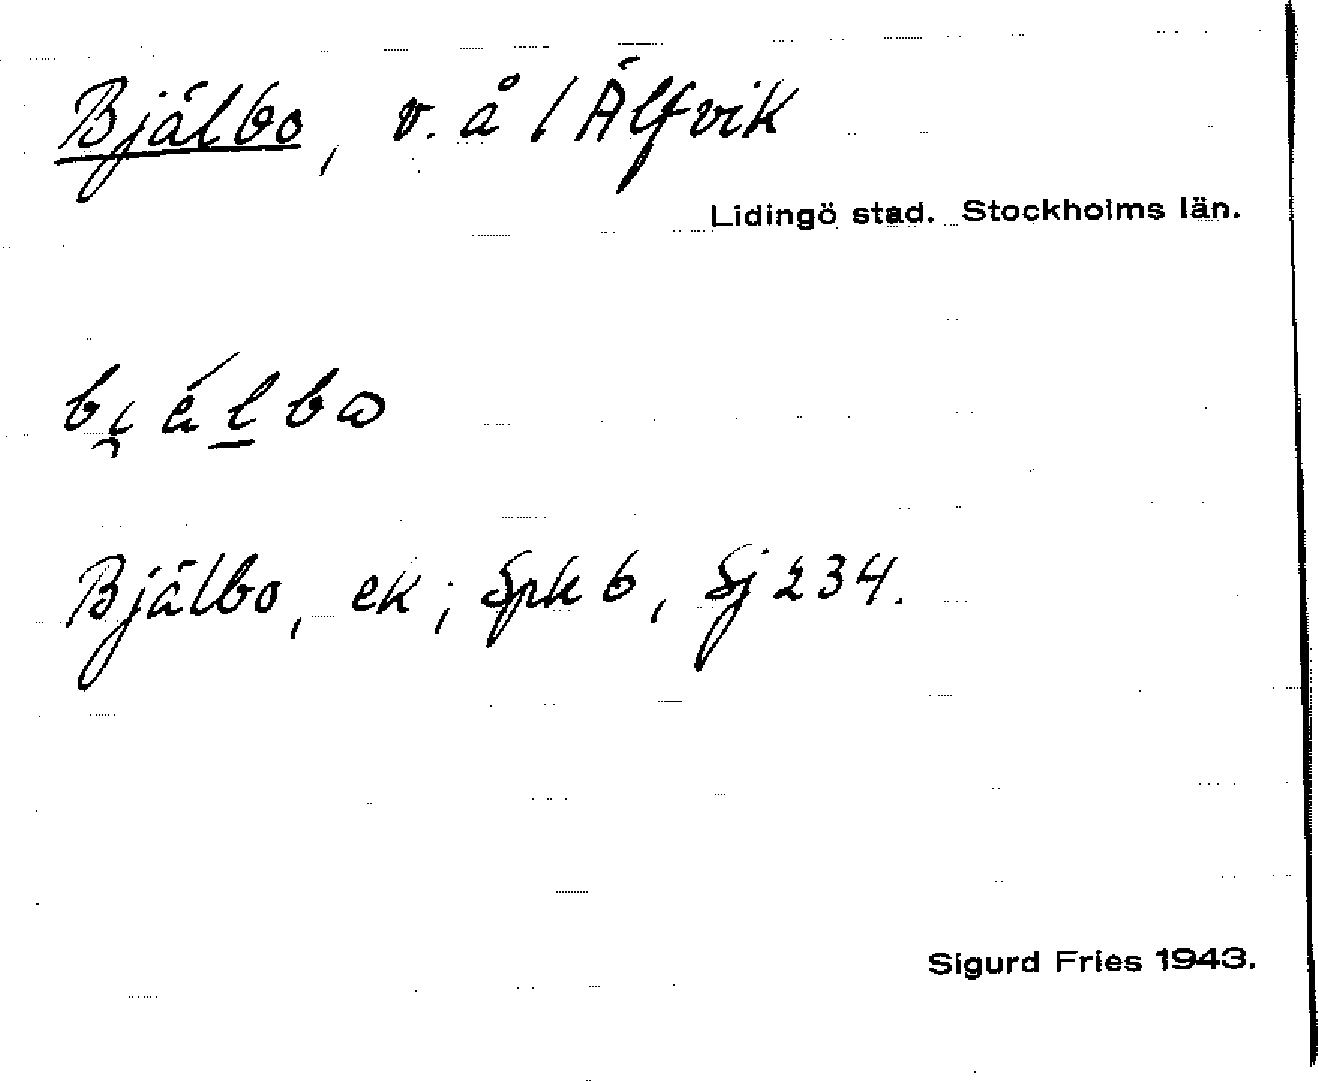 Bjälbo, v. å / Älfvik
Lidingö stad. Stockholms län.
bi̯álbo
Bjälbo, ek; Spk 6, Sj 234.
Sigurd Fries 1943.